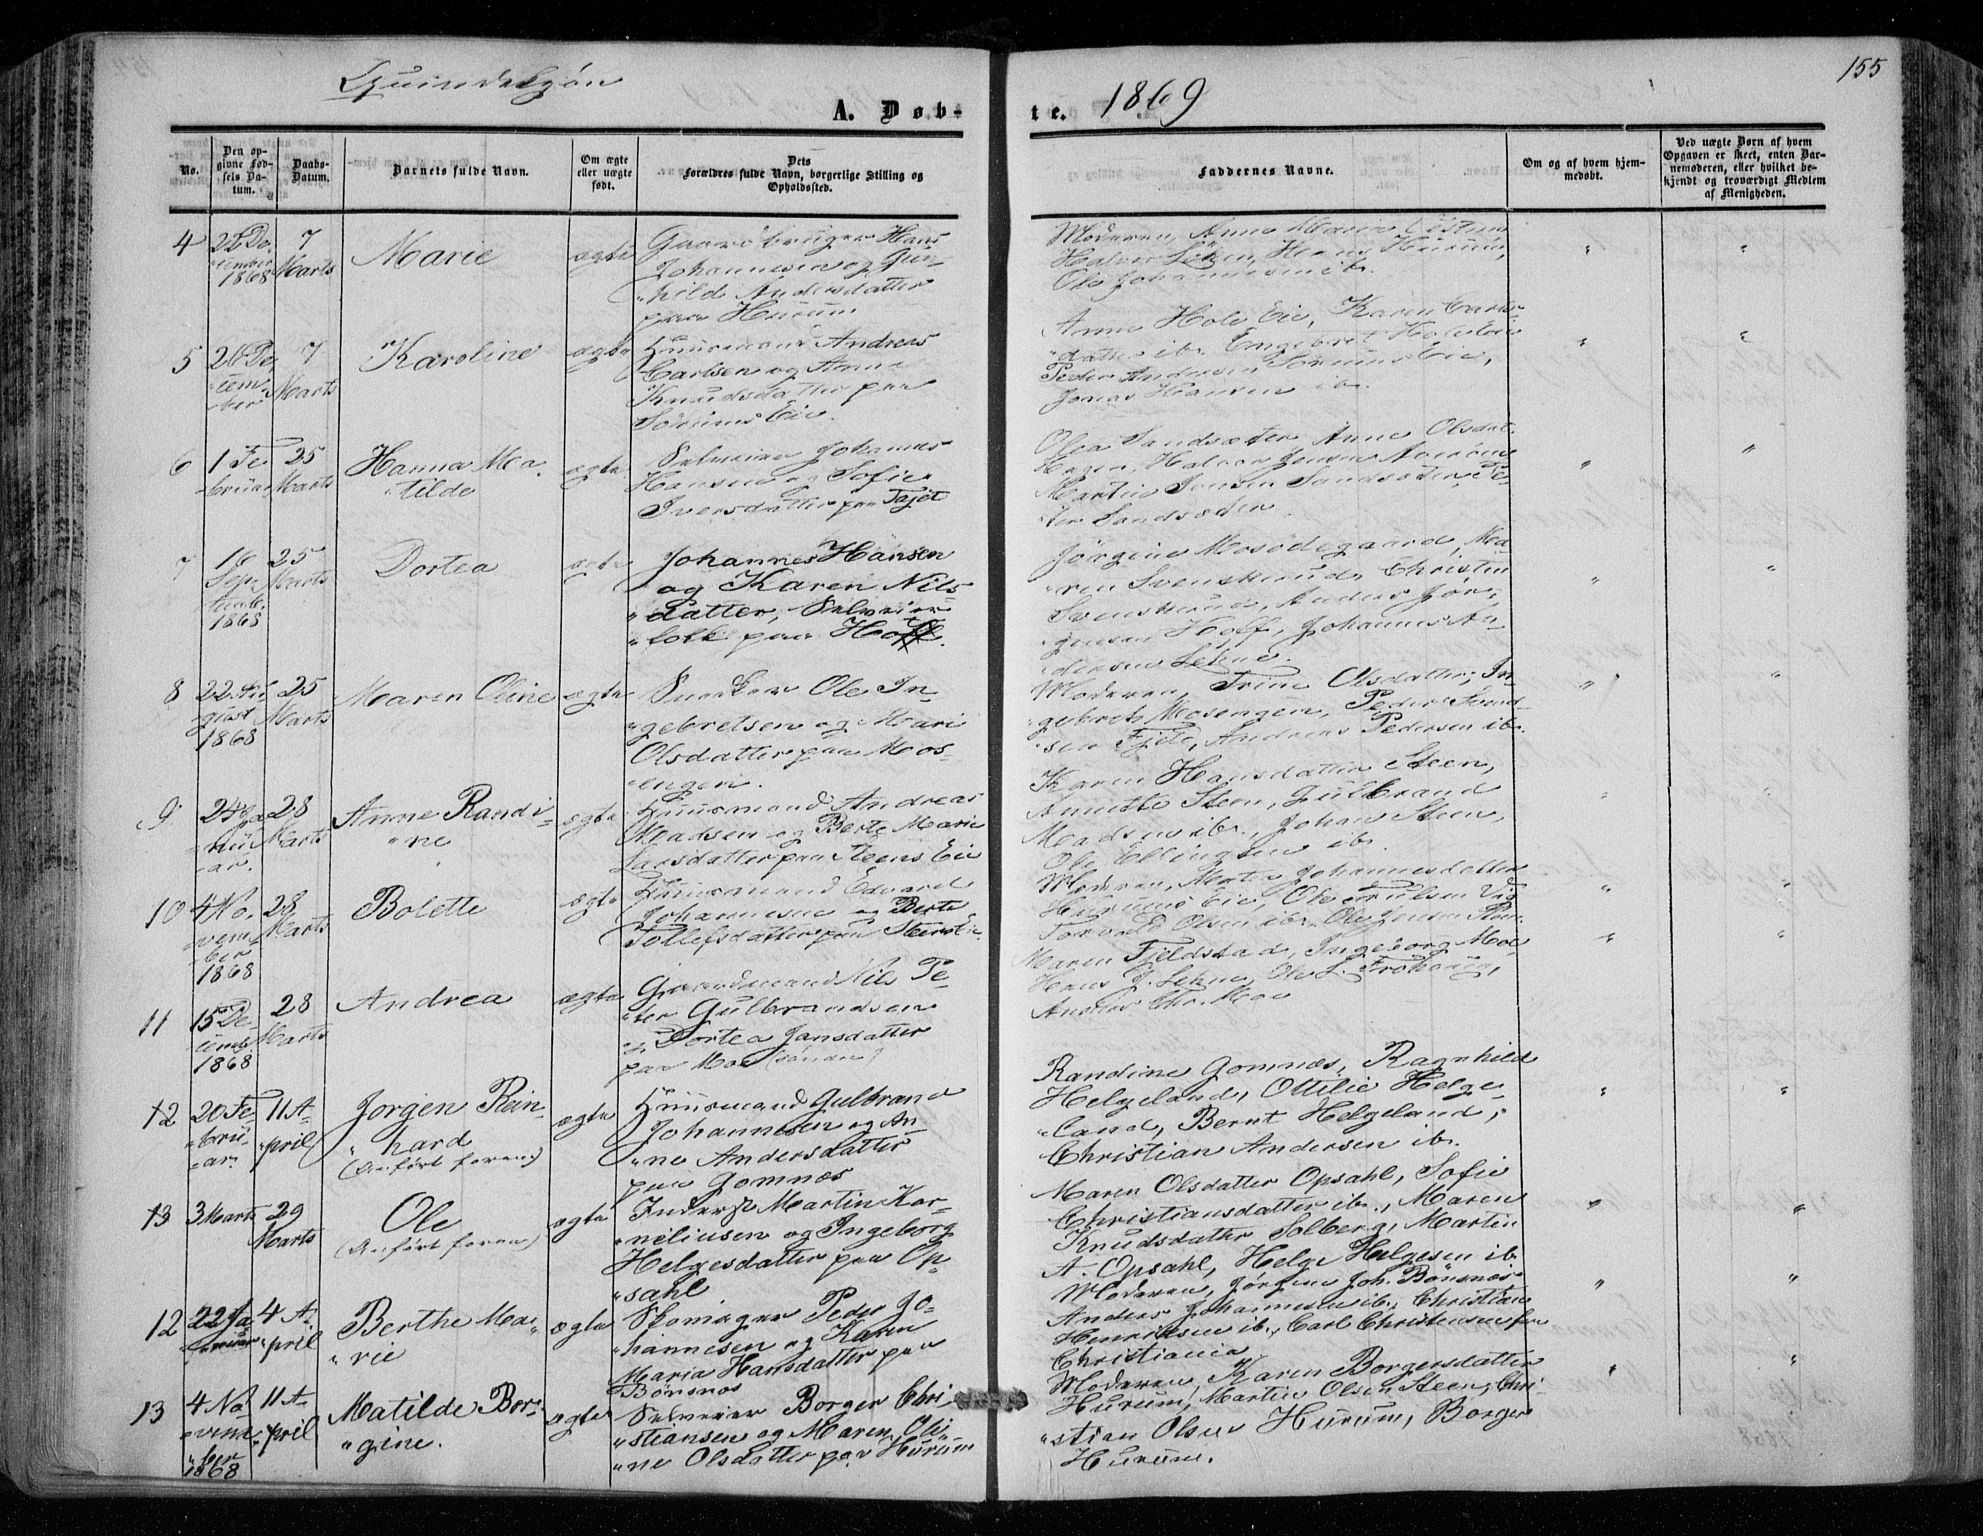 Quindekjøn
1869
155
A. Døb-
te.
No.
Den op-
givne Fød-
sels Da-
tum.
Daabs-
Datum.
Barnets fulde Navn.
Om ægte
eller uægte
født.
Dets
Forældres fulde Navn, borgerlige Stilling og
Opholdssted.
Faddernes Navne.
Om og af hvem hjem-
medøbt.
Ved uægte Børn af hvem
Opgaven er skeet, enten Bar-
nemoderen, eller hvilket be-
kjendt og troværdigt Medlem
af Menigheden.
4
De-
cember
1868
7
Marts
Marie
ægte
Gaardbruger Hans
Johannesen og Gun-
hild Andersdatter
paa Hurum
Moderen, Anne Maria
Halvor Lehne, Hans Hurum,
Ole Johannesen ib.
5
26 De-
cem-
ber
7
Marts
Karoline
ægte
Huusmand Andreas
Carlsen og Anne
Knudsdatter paa
Sørums Eie.
Anne Hole Eie, Karen Carls-
datter ib. Engebret Hole Eie
Peder Andersen Sørums Eie,
Jonas Hansen ib.
6
1 Fe-
bruar
25
Marts
Hanna Ma-
tilde
ægte
Selveier Johannes
Hansen og Sofie
Iversdatter paa Fajet
Olea Sandsæter, Anne Olsdat.
Hagen, Halvor Jensen
Martin Jensen Sandsæter, Pe-
ter Sandsæter.
7
16
Sep-
temb.
1868
25
Marts
Dortea
ægte
Johannes Hansen
og Karen Nils-
datter, Selveier-
folk paa Hoff.
Jørgine Mosødegaard, Ma-
ren Svenskerud, Christen
Svenskerud, Anders Jør-
gensen Hoff, Johannes An-
dersen Lehne.
8
22. Au-
gust
1868
25
Marts
Maren Oline
ægte
Snedker Ole In-
gebretsen og Mari
Olsdatter paa Mos-
engen.
Moderen, Trine Olsdatter, In-
gebret Mosengen, Peder Svend-
sen Fjeld, Andreas Pedersen ib.
9
24 Ja-
nu-
ar.
28
Marts
Anne Randi-
ne
ægte
Huusmand Andreas
Madsen og Berte Marie
Larsdatter paa Steens Eie
Karen Hansdatter Steen,
Annette Steen, Gulbrand
Madsen ib., Johan Steen,
Ole Ellingsen ib.
10
4 No-
vem-
ber
1868
28
Marts
Bolette
ægte
Huusmand Edvard
Johannesen og Berte
Tollefsdatter paa Steens Eie
Moderen, Johannesdatter
Eie, Ole Trulsen Vig
Torvald Olsen ib. Ole Jensen
11
15 De-
cemb.
1868
28
Marts
Andrea
ægte
Gaardmand Nils Pe-
ter Gulbrandsen
og Dortea Jansdatter
paa Moe (søndre)
Maren Fjeldstad, Ingeborg Moe
Hans J. Lehne, Ole L. Frøhaug,
Anders Chr. Moe
12
20 Fe-
bru-
ar.
11 A-
pril
Jørgen Rein-
hard
(Anført foran)
ægte
Huusmand Gulbrand
Johannesen og An-
ne Andersdatter
paa Gomnæs
Randine Gomnæs, Ragnhild
Helgeland, Ottilie Helge-
land, Bernt Helgeland,
Christian Andersen ib.
13
3 Marts
29
Marts
Ole
(Anført foran)
ægte
Inderst Martin Kor-
neliusen og Ingeborg
Helgesdatter paa Op-
sahl
Maren Olsdatter Opsahl, Sofie
Christiansdatter ib., Maren
Knudsdatter Solberg, Martin
A. Opsahl, Helge Helgesen ib
12
22 Ja-
nuar
4 A-
pril
Berthe Ma-
rie
ægte
Skomager Peder Jo-
hannesen og Karen
Maria Hansdatter paa
Bønsnæs
Moderen, Jørgine Joh. Bønsnæs
Anders Johannesen ib., Christian
Henriksen ib., Carl Christensen fra
Christiania
13
4 No-
vem-
ber
1868
11 A-
pril
Matilde Bor-
gine.
ægte
Selveier Borger Chri-
stiansen og Maren Oli-
ne Olsdatter paa Hurum
Moderen, Karen Borgersdatter
Hurum, Martin Olsen Steen, Chri-
stian Olsen Hurum, Borger
Hurum.